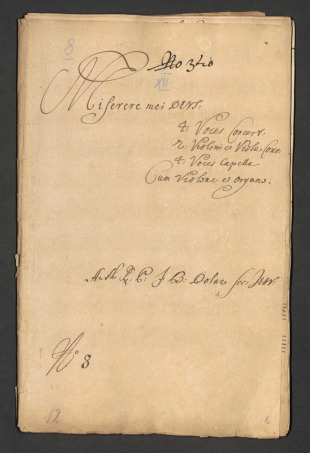 8
XII
Miserere mei DEUS.
4. Voces Concert.
2. Violini et Viole Conc.
4 Voces Capella
Cum Violone et Organo.
Auth. R. P. J. B. Dolar Soc. Jesu.
No 8
12